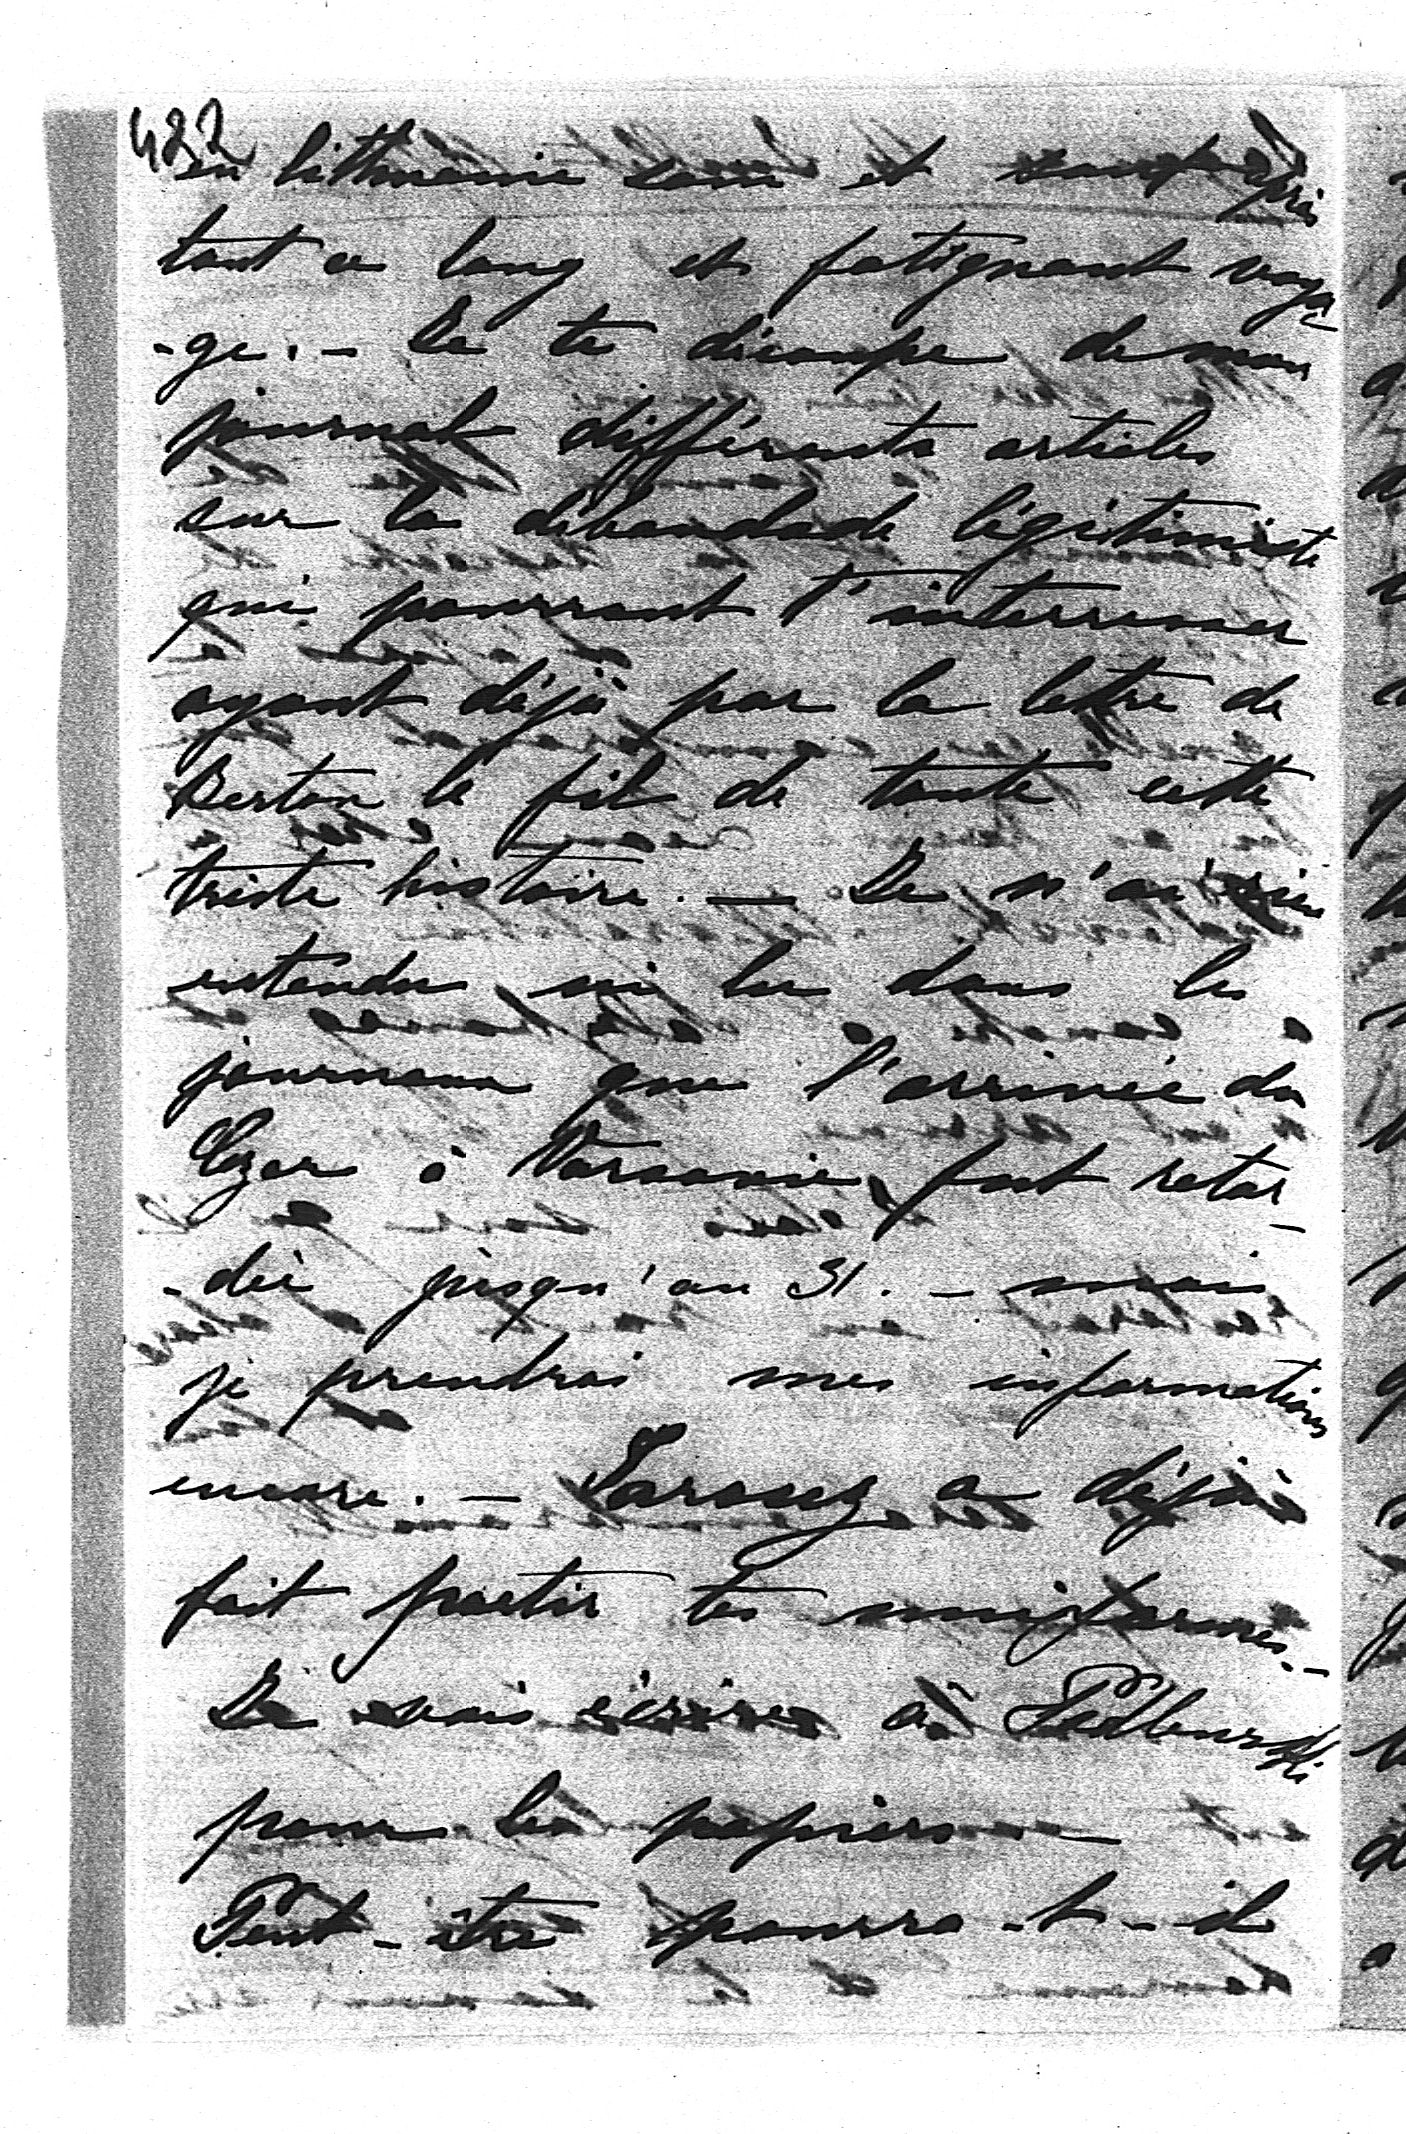 482
en Litthuanie sain et sauf après
tout ce long et fatiguant voya
-ge. - Je te découpe de mon
journal différents articles
sur la débandade légitimiste
qui pourront t'interresser
ayant déjà par la lettre de
Berton le fil de toute cette
triste histoire. — Je n'ai rien
entendu ni lu dans les
journaux que l'arrivée du
Czar à Varsovie fut retar
-
-dée jusqu'au 31. - mais
je prendrai mes informations
encore. — a déjà
fait partir tes uniformes. -
Je vais écrire à
pour les papiers —
Peut-être pourra-t-il